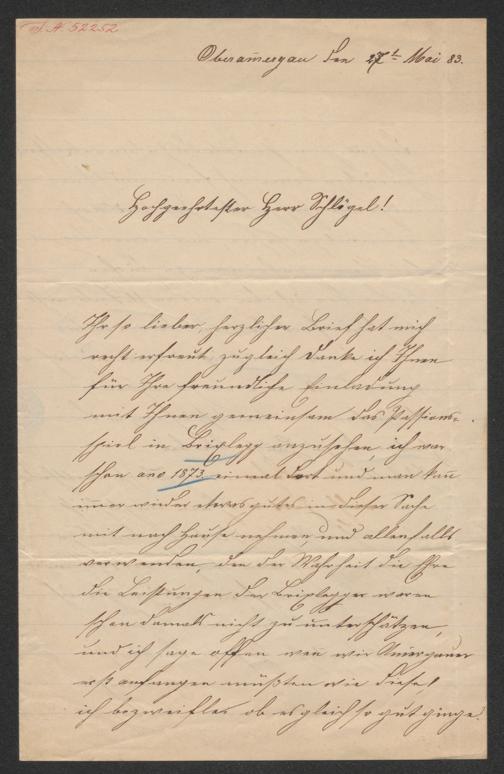 J. N. 52252
Oberam̅ergau den 27t Mai 83.
Hochgeehrtester Herr Schlögel!
Ihr so lieber, herzlicher Brief hat mich
recht erfreut, zugleich danke ich Ihnen
für Ihre freundliche Einladung
mit Ihnen gemeinsam das Passions-
spiel in Brixlegg anzusehen, ich war
schon ano 1873 einmal dort und man kan̅
im̅er wieder etwas gutes in dieser Sache
mit nach Hause nehmen und allenfalls
verwenden, den der Wahrheit die Ehre
die Leistungen der Brixlegger waren
schon damals nicht zu unterschätzen,
und ich sage offen wen̅ wir Am̅ergauer
erst anfangen müßten wie diese
ich bezweifle ob es gleich so gut ginge.